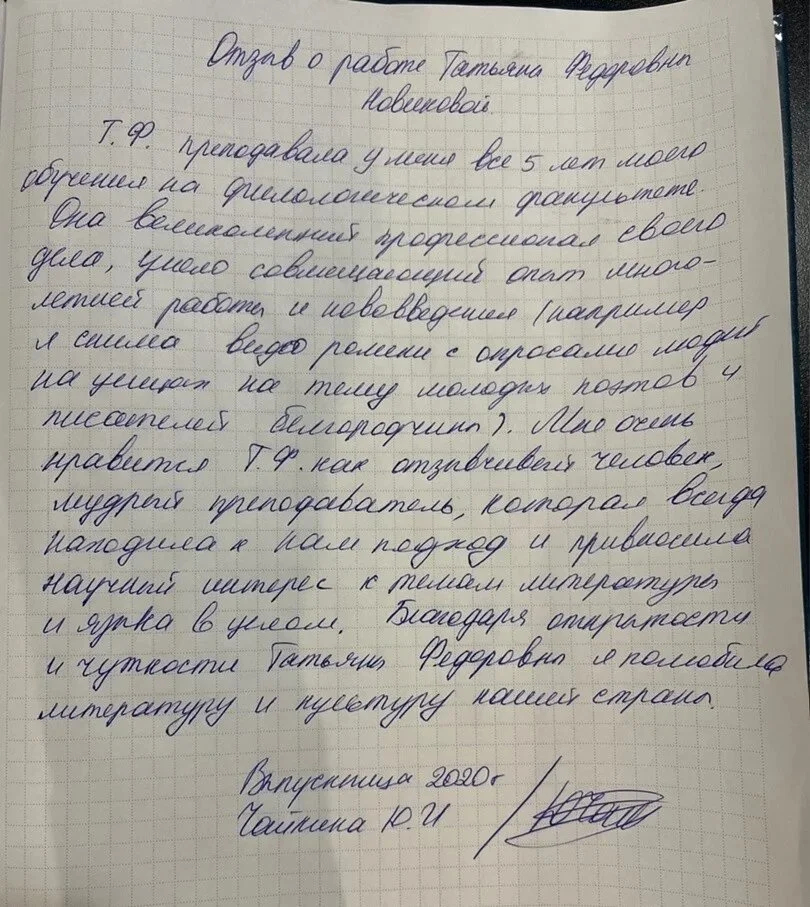 Отзыв о работе Татьяны Федоровны
Новиковой.
Т.Ф. преподавала у меня все 5 лет моего
обучения на филологическом факультете.
Она великолепный профессионал своего
дела, умело совмещающий опыт много-
летней работы и нововведения (например
я снима видео ролики с опросами людей
на улицах на тему молодых поэтов и
писателей белгородчины). Мне очень
нравится Т.Ф. как отзывчивый человек,
мудрый преподаватель, которая всегда
находила к нам подход и привносила
научный интерес к темам литературы
и языка в целом. Благодаря открытости
и чуткости Татьяны Федоровны я полюбила
литературу и культуру нашей страны.
Выпускница 2020г
Чайкина Ю.И